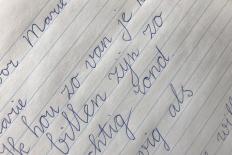 oor Marie
arie
Ik hou zo van je
billen zijn zo
chtig rond
als